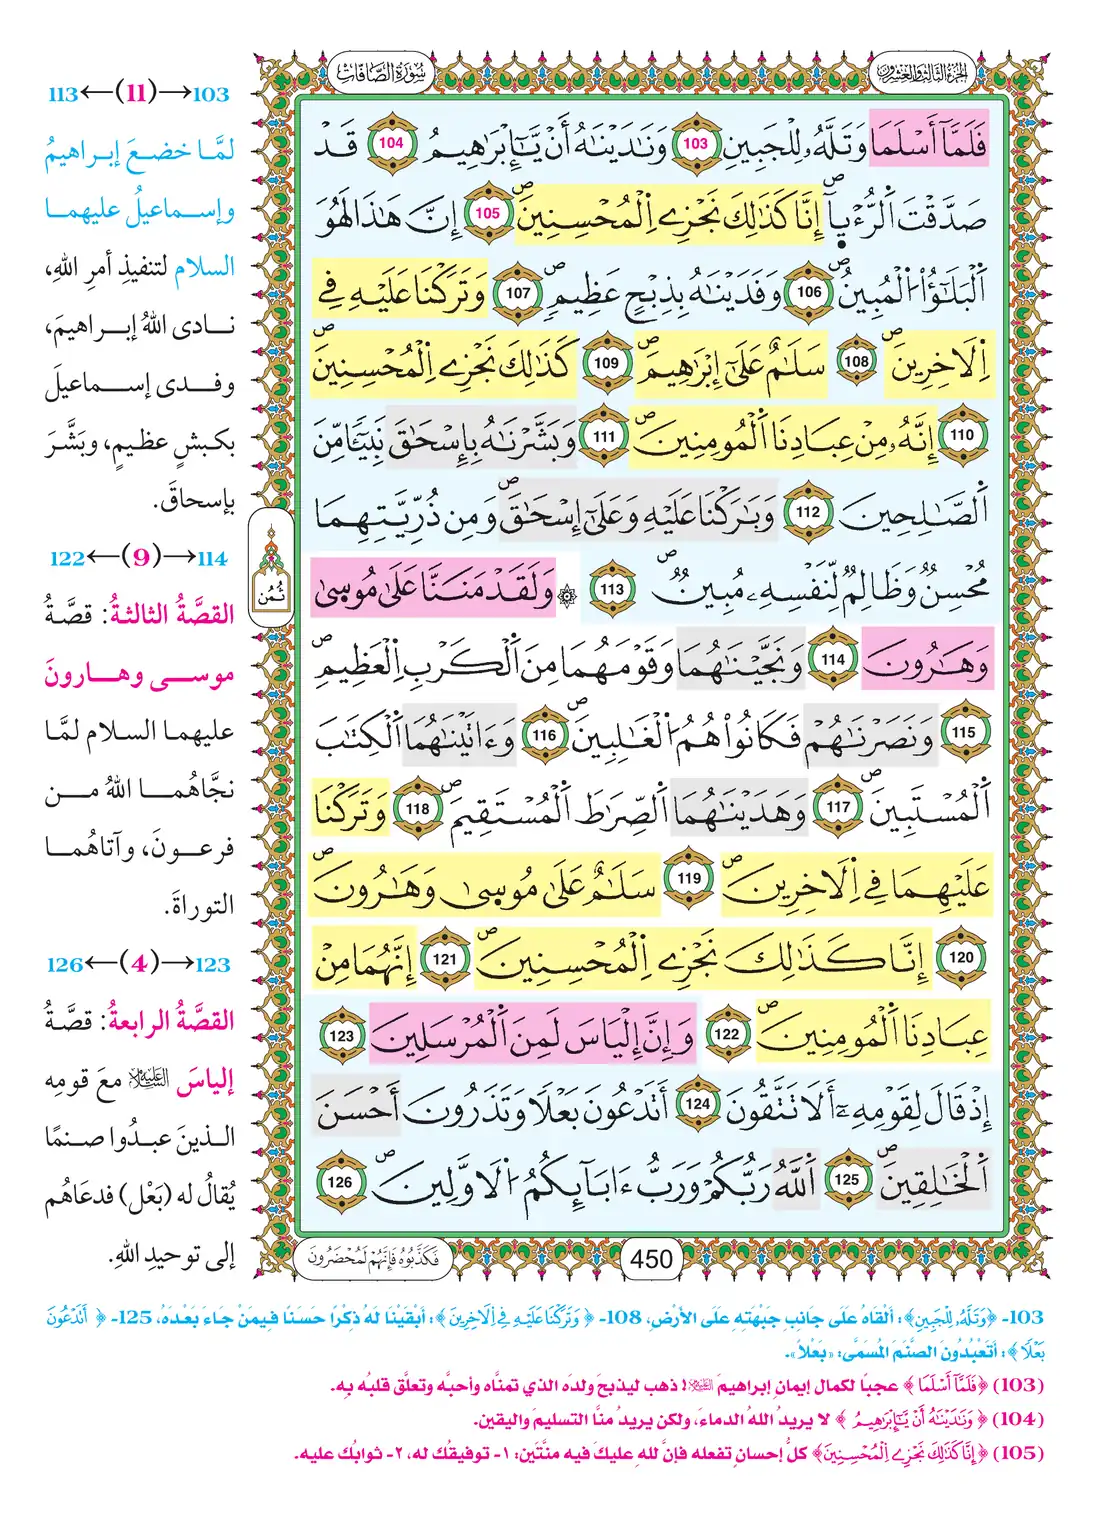 الجزء الثالث والعشرون
سُورَةُ الصَّافَّاتِ
فَلَمَّآ أَسْلَمَا وَتَلَّهُۥ لِلْجَبِينِ 103 وَنَٰدَيْنَٰهُ أَنْ يَّٰٓإِبْرَٰهِيمُ 104 قَدْ
صَدَّقْتَ اَ۬لرُّءْي۪آ إِنَّا كَذَٰلِكَ نَجْزِے اِ۬لْمُحْسِنِينَ 105 إِنَّ هَٰذَا لَهُوَ
اَ۬لْبَلَٰٓؤُاْ اُ۬لْمُبِينُ 106 وَفَدَيْنَٰهُ بِذِبْحٍ عَظِيمٍ 107 وَتَرَكْنَا عَلَيْهِ فِے
اِ۬لَاخِرِينَ 108 سَلَٰمٌ عَلَىٰٓ إِبْرَٰهِيمَ 109 كَذَٰلِكَ نَجْزِے اِ۬لْمُحْسِنِينَ
110 إِنَّهُۥ مِنْ عِبَادِنَا اَ۬لْمُومِنِينَ 111 وَبَشَّرْنَٰهُ بِإِسْحَٰقَ نَبِيٓـٔاً مِّنَ
اَ۬لصَّٰلِحِينَ 112 وَبَٰرَكْنَا عَلَيْهِ وَعَلَىٰٓ إِسْحَٰقَ وَمِن ذُرِّيَّتِهِمَا
مُحْسِنٌ وَظَالِمٌ لِّنَفْسِهِۦ مُبِينٌ 113 ۞ وَلَقَدْ مَنَنَّا عَلَىٰ مُوسۭىٰ
وَهَٰرُونَ 114 وَنَجَّيْنَٰهُمَا وَقَوْمَهُمَا مِنَ اَ۬لْكَرْبِ اِ۬لْعَظِيمِ
115 وَنَصَرْنَٰهُمْ فَكَانُواْ هُمُ اُ۬لْغَٰلِبِينَ 116 وَءَاتَيْنَٰهُمَا اَ۬لْكِتَٰبَ
اَ۬لْمُسْتَبِينَ 117 وَهَدَيْنَٰهُمَا اَ۬لصِّرَٰطَ اَ۬لْمُسْتَقِيمَ 118 وَتَرَكْنَا
عَلَيْهِمَا فِے اِ۬لَاخِرِينَ 119 سَلَٰمٌ عَلَىٰ مُوسۭىٰ وَهَٰرُونَ
120 إِنَّا كَذَٰلِكَ نَجْزِے اِ۬لْمُحْسِنِينَ 121 إِنَّهُمَا مِنْ
عِبَادِنَا اَ۬لْمُومِنِينَ 122 وَإِنَّ إِلْيَاسَ لَمِنَ اَ۬لْمُرْسَلِينَ 123
إِذْ قَالَ لِقَوْمِهِۦٓ أَلَا تَتَّقُونَ 124 أَتَدْعُونَ بَعْلًا وَتَذَرُونَ أَحْسَنَ
اَ۬لْخَٰلِقِينَ 125 اَ۬للَّهُ رَبُّكُمْ وَرَبُّ ءَابَآئِكُمُ اُ۬لَاوَّلِينَ 126
ثُمُن
450
فَكَذَّبُوهُ فَإِنَّهُمْ لَمُحْضَرُونَ
103→(11)←113
لمَّا خضعَ إبراهيمُ
وإسماعيلُ عليهما
السلام لتنفيذِ أمرِ اللهِ،
نادى اللهُ إبراهيمَ،
وفدى إسماعيلَ
بكبشٍ عظيمٍ، وبَشَّرَ
بإسحاقَ.
114→(9)←122
القصَّةُ الثالثةُ: قصَّةُ
موسى وهارونَ
عليهما السلام لمَّا
نجَّاهُما اللهُ من
فرعونَ، وآتاهُما
التوراةَ.
123→(4)←126
القصَّةُ الرابعةُ: قصَّةُ
إلياسَ عليه السلام معَ قومِه
الذينَ عبدُوا صنمًا
يُقالُ له (بَعْل) فدعَاهُم
إلى توحيدِ اللهِ.
103- ﴿وَتَلَّهُۥ لِلْجَبِينِ﴾: أَلْقَاهُ عَلَى جَانِبِ جَبْهَتِهِ عَلَى الأَرْضِ، 108- ﴿وَتَرَكْنَا عَلَيْهِ فِے اِ۬لَاخِرِينَ﴾: أَبْقَيْنَا لَهُ ذِكْرًا حَسَنًا فِيمَنْ جَاءَ بَعْدَهُ، 125- ﴿أَتَدْعُونَ
بَعْلًا﴾: أَتَعْبُدُونَ الصَّنَمَ المُسَمَّى: «بَعْلًا».
(103) ﴿فَلَمَّآ أَسْلَمَا﴾ عجبًا لكمال إيمانِ إبراهيمَ عليه السلام! ذهب ليذبحَ ولدَه الذي تمنَّاه وأحبَّه وتعلَّق قلبُه بِه.
(104) ﴿وَنَٰدَيْنَٰهُ أَنْ يَّٰٓإِبْرَٰهِيمُ﴾ لا يريدُ اللهُ الدماءَ، ولكن يريدُ منَّا التسليمَ واليقين.
(105) ﴿إِنَّا كَذَٰلِكَ نَجْزِے اِ۬لْمُحْسِنِينَ﴾ كلُّ إحسانٍ تفعله فإنَّ للهِ عليكَ فيه منَّتَين: ١- توفيقُك له، ٢- ثوابُك عليه.